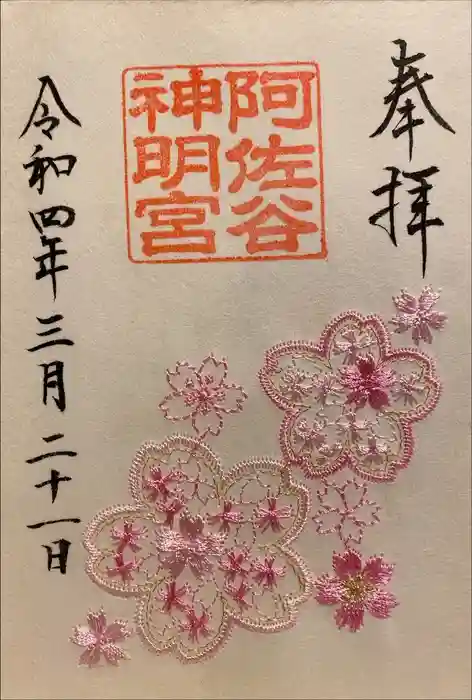 奉拝
阿佐谷
神明宮
令和四年三月二十一日